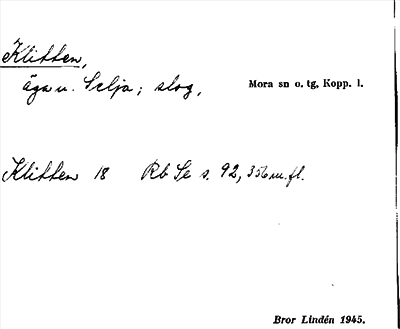 Klitten,
äga u. Selja; skog,
Mora sn o. tg, Kopp. l.
Klitten 18 Rb Se s. 92, 356 m.fl.
Bror Lindén 1945.